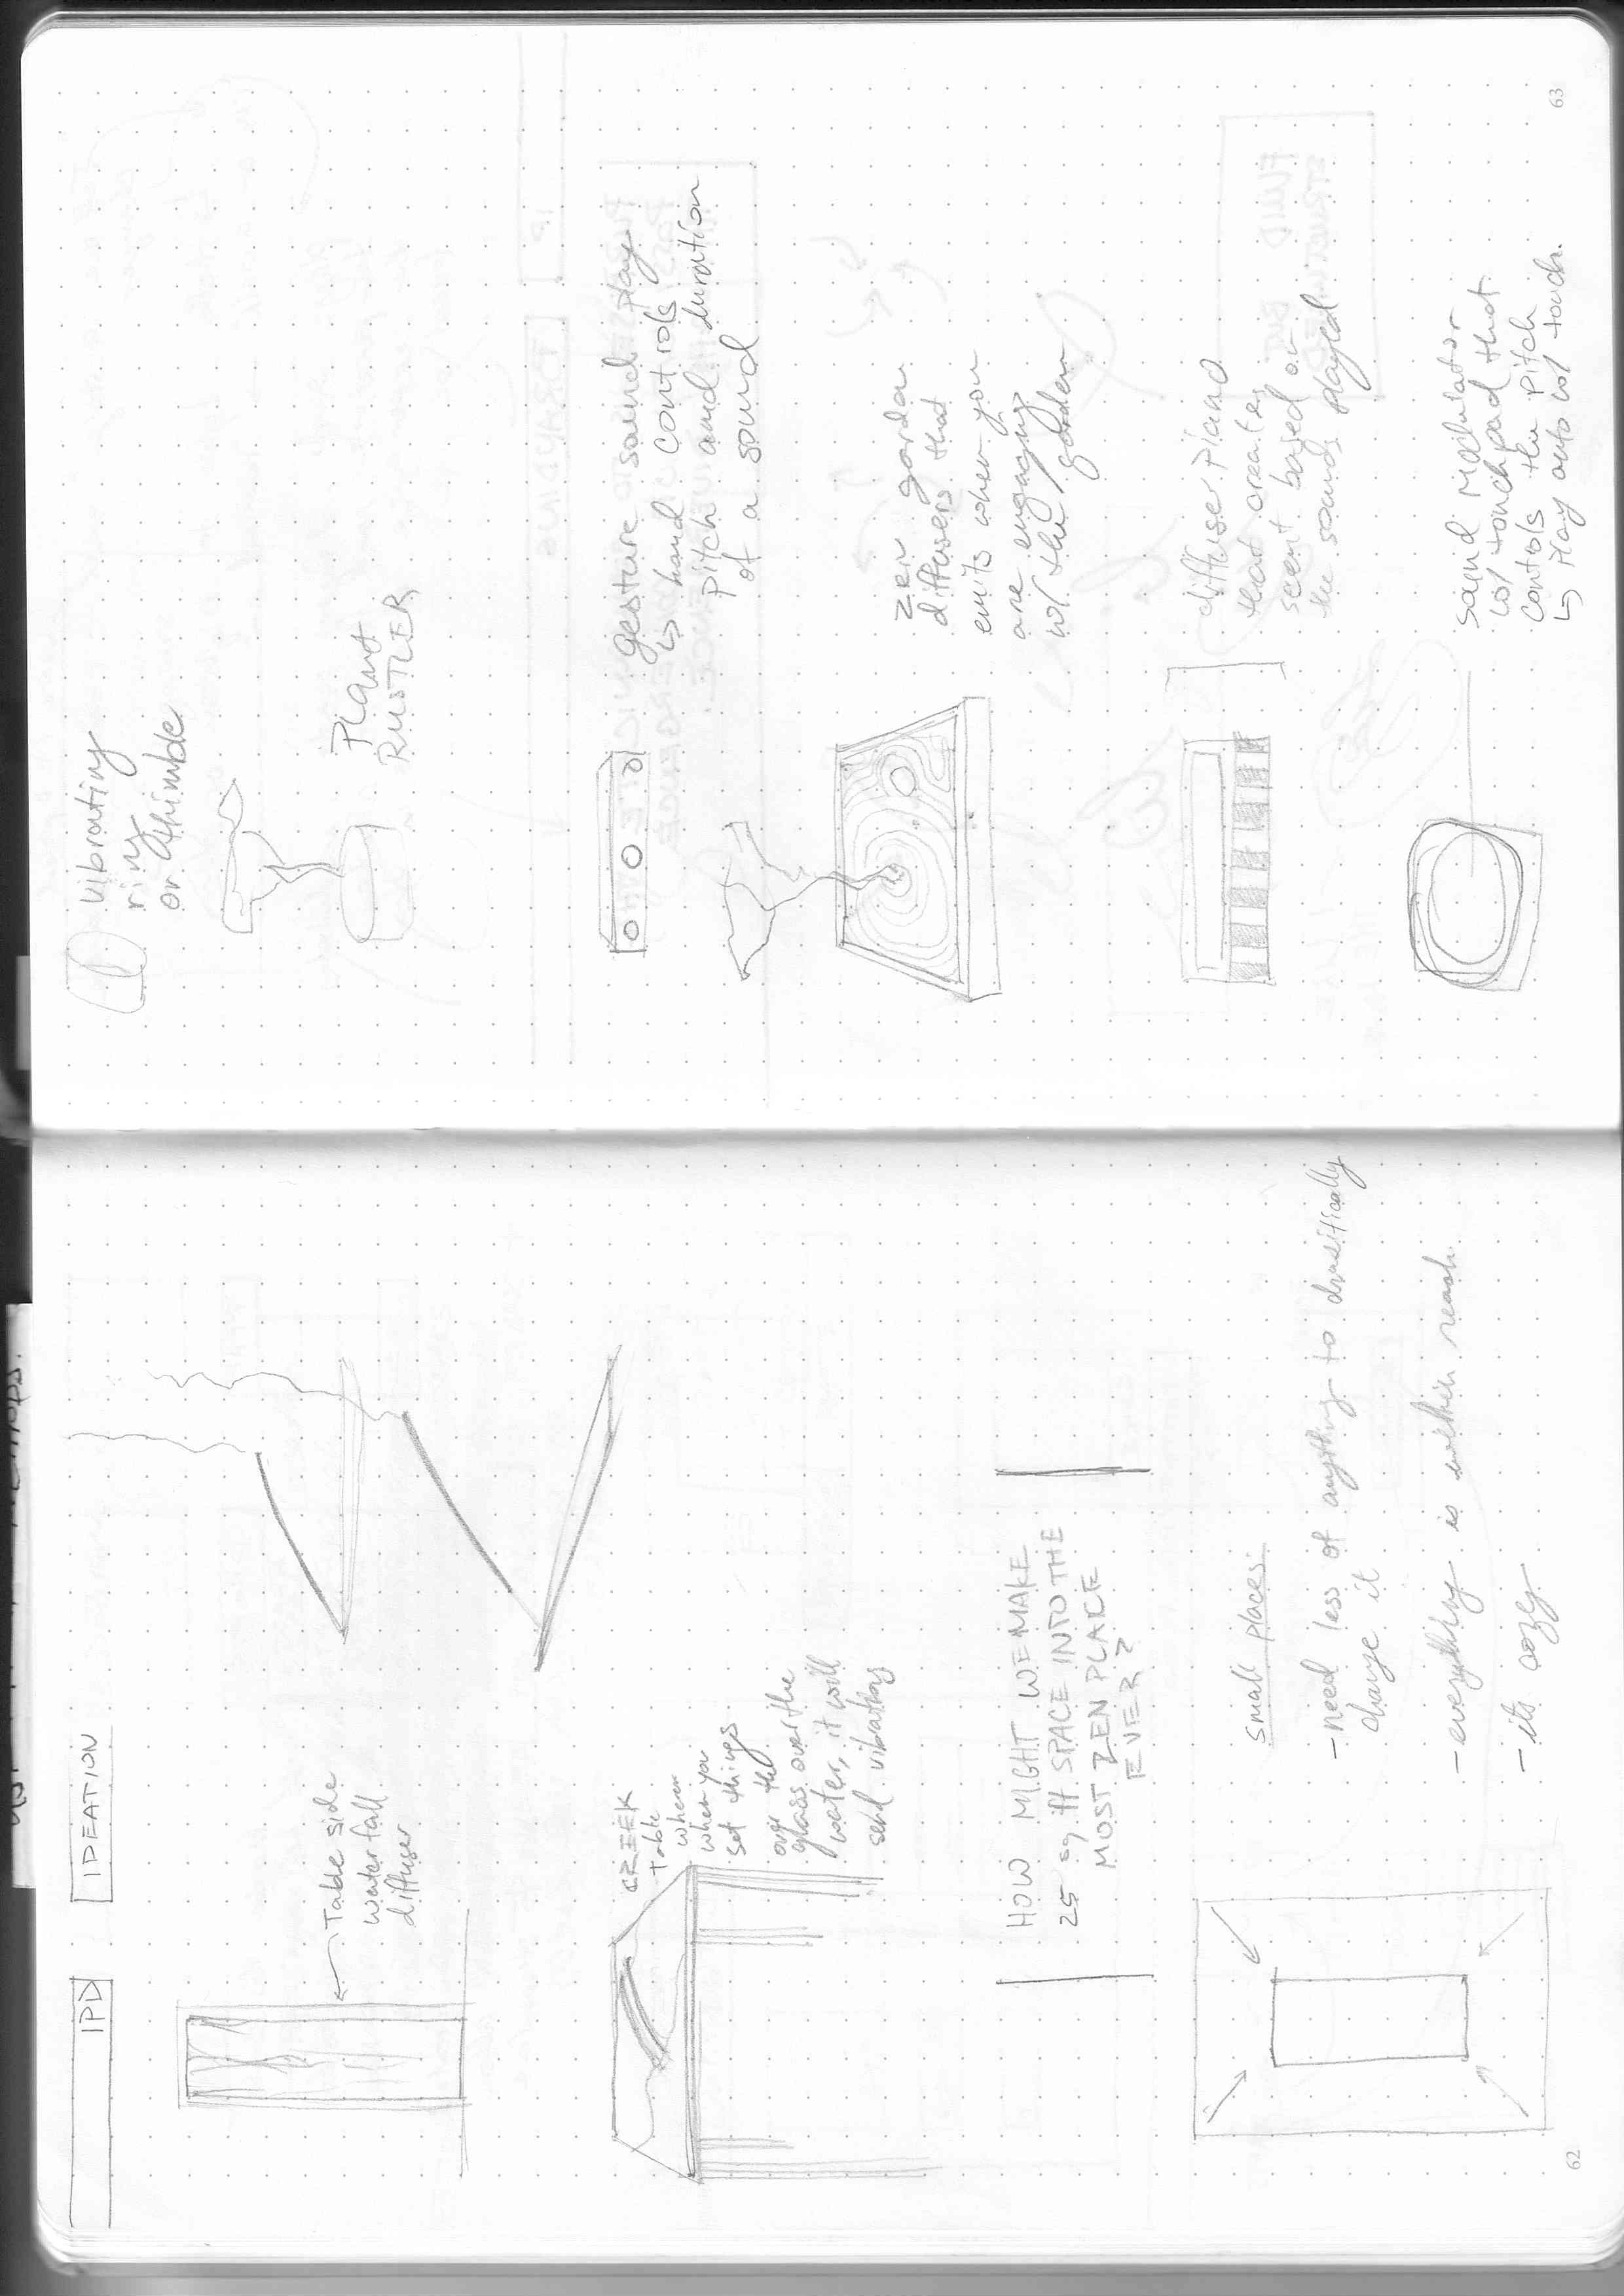 IPD
IDEATION
Table side
waterfall
diffuser
CREEK
Table
where
when you
set things
over the
glass over the
water, it will
send vibrations
HOW MIGHT WE MAKE
25 sq. ft SPACE INTO THE
MOST ZEN PLACE
EVER?
small places:
- need less of anything to drastically
change it
- everything is within reach
- its cozy
62
vibrating
ring
or thimble
Plant
RUSTLER
gesture sound play
↳ hand controls
pitch and duration
of a sound
zen garden
diffusers that
emits when you
are engaging
w/ the garden
diffuser piano
that creates
scent based on
the sounds played
sound modulator
w/ touchpad that
controls the pitch
↳ play auto w/ touch.
63